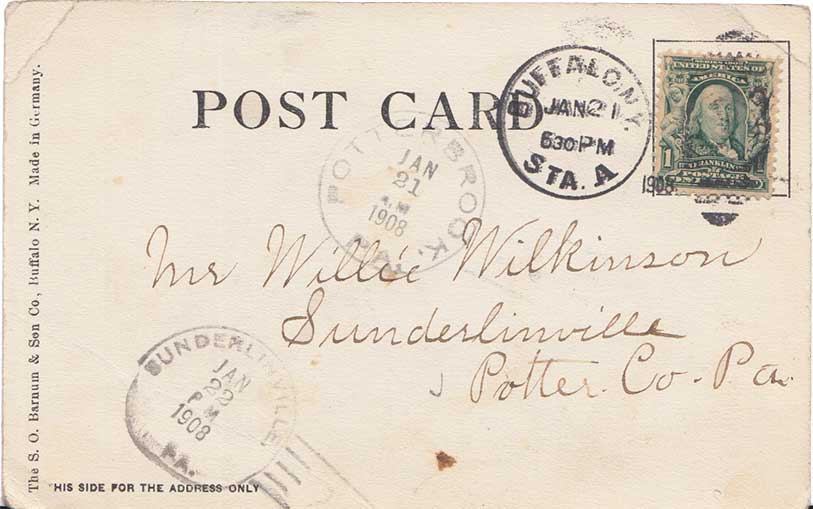 POST CARD
BUFFALO, N.Y.
JAN 21
630 PM
STA. A
1908
UNITED STATES OF
AMERICA
1
FRANKLIN
POSTAGE
JAN
21
A.M
1908
PA.
Mr Willie Wilkinson
Sunderlinville
Potter. Co. Pa.
SUNDERLINVILLE
JAN
22
P M
1908
PA.
The S. O. Barnum & Son Co., Buffalo N. Y. Made in Germany.
HIS SIDE FOR THE ADDRESS ONLY